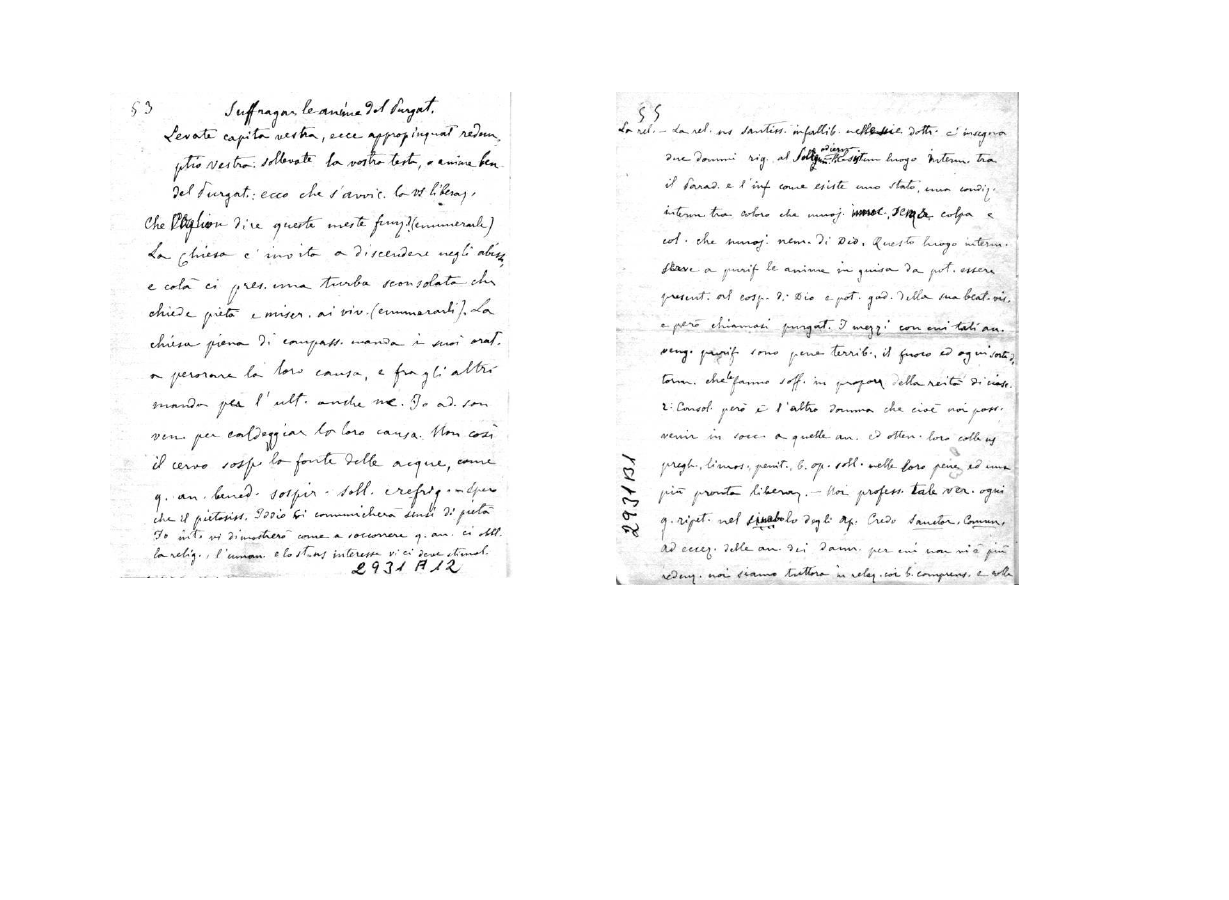 53
Suffragar le anime del Purgat.
Levate capita vestra, ecce appropinquat redem-
ptio vestra. sollevate la vostra testa, o anime ben.
del Purgat.: ecco che s'avvic. la vs liberaz.
Che voglion dire queste meste funz.? (enumerarle)
La Chiesa c'invita a discendere negli abissi,
e colà ci pres. una turba sconsolata che
chiede pietà e miser. ai viv. (enumerarli). La
chiesa piena di compass. manda i suoi orat.
a perorare la loro causa, e fra gli altri
manda per l'ult. anche me. Io ad. son
ven. per caldeggiar la loro causa. Non così
il cervo sosp. la fonte delle acque, come
q. an. bened. sospir. soll. e refrig.
che il pietosiss. Iddio ci comunicherà sensi di pietà
Io int. vi dimostrerò come a soccorrere q. an. ci obbl.
la relig., l'uman. e lo st. ns interesse vi ci deve stimol.
2931 A12
55
La rel. - La rel. ns santiss. infallib. nelle sue dottr. c'insegna
due dommi rig. al sogg. odierno. Esiste un luogo interm. tra
il Parad. e l'inf. come esiste uno stato, una condiz.
interm. tra coloro che muoj. senza colpa e
col. che muoj. nem. di Dio. Questo luogo interm.
serve a purif. le anime in guisa da pot. essere
present. al cosp. di Dio e pot. god. della sua beat. vis.
e però chiamasi purgat. I mezzi con cui tali an.
veng. purif. sono pene terrib., il fuoco ed ogni sorta di
torm. che le fanno soff. in proporz. della reità di ciasc.
2: Consol. però è l'altro domma che cioè noi poss.
venir in socc. a quelle an. ed otten. loro colle ns
pregh., limos., penit., b. op. soll. nelle loro pene, ed una
più pronta liberaz. - Noi profess. tale ver. ogni
q. ripet. nel simbolo degli Ap. Credo Sanctor. Comun.
ad eccez. delle an. dei dann. per cui non vi è più
redenz. noi siamo tuttora in relaz. coi b. comprens. e colle
2931 B1